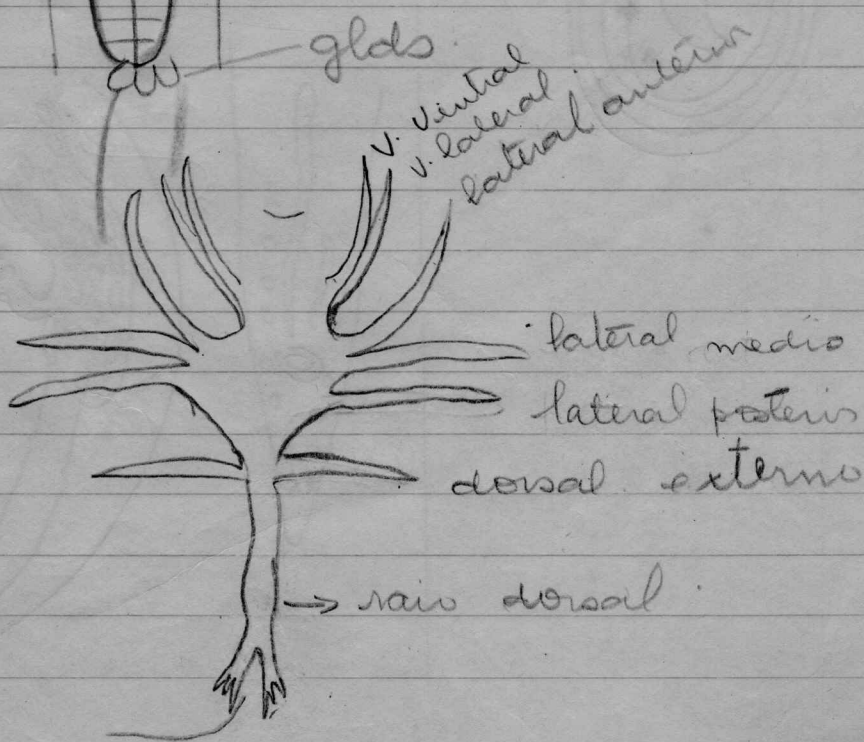 glds.
v. ventral
v. lateral.
lateral anterior
lateral medio
lateral posterior
dorsal externo
raio dorsal.